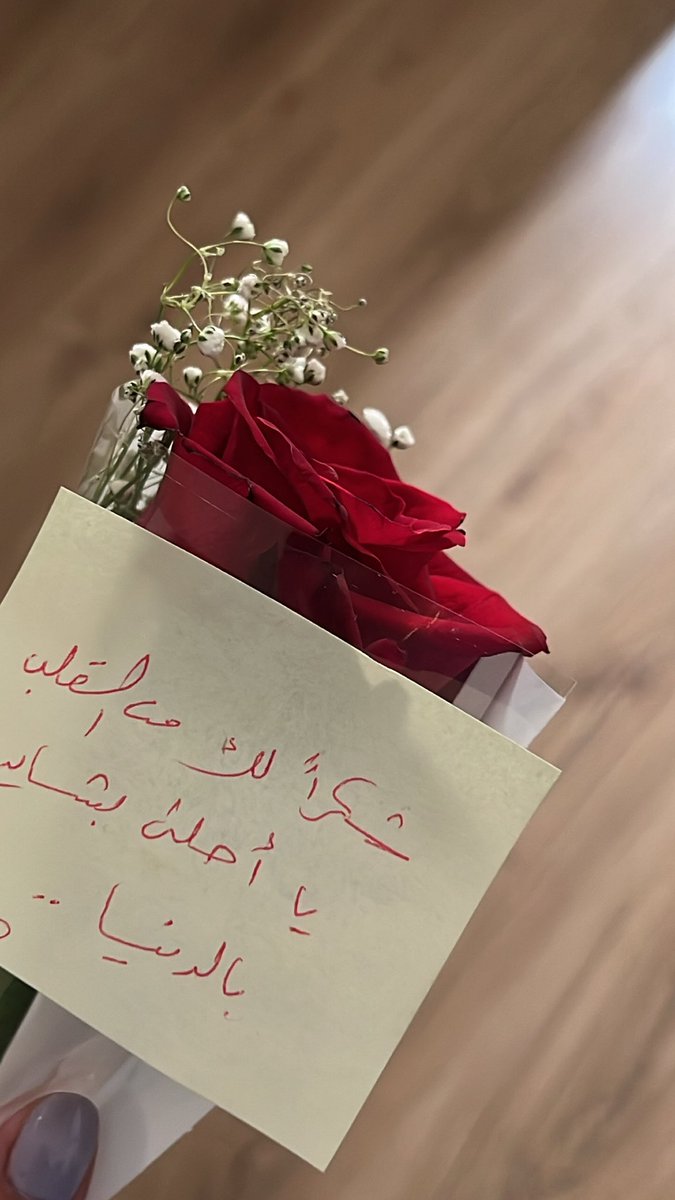 شكراً لك من القلب
يا أحلى بشاير
بالدنيا ..